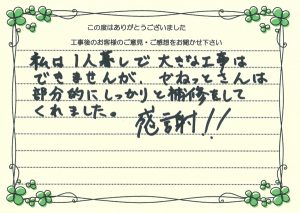 この度はありがとうございました
工事後のお客様のご意見・ご感想をお聞かせ下さい
私は1人暮しで大きな工事は
できませんが、ぜねっとさんは
部分的にしっかりと補修をして
くれました。
感謝!!